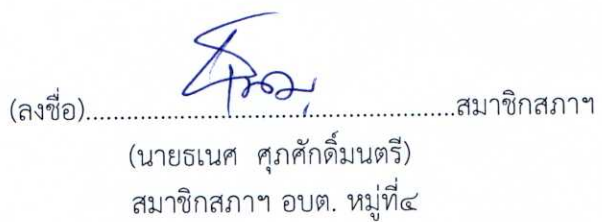 (ลงชื่อ)......................................................สมาชิกสภาฯ
(นายธเนศ ศุภศักดิ์มนตรี)
สมาชิกสภาฯ อบต. หมู่ที่๔